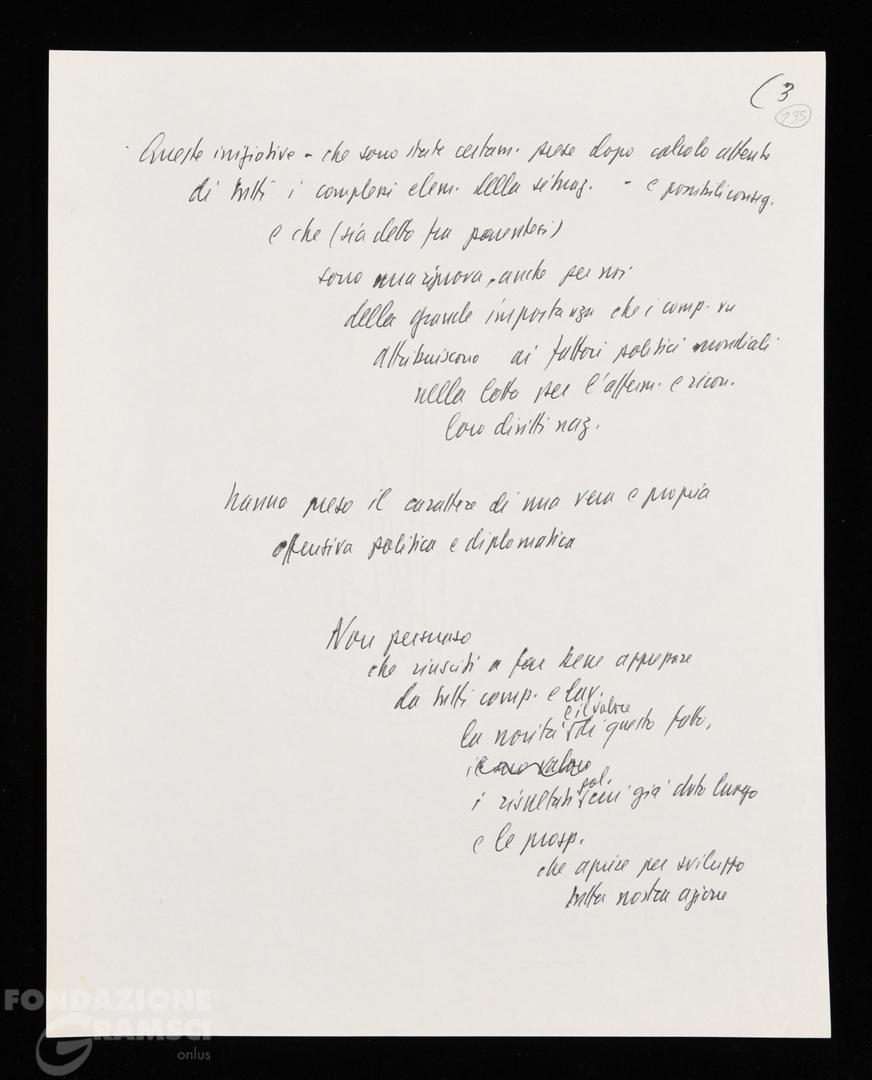 (3
135
Queste iniziative - che sono state certam. prese dopo calcolo attento
di tutti i complessi elem. della situaz. - e possibili conseg.
e che (sia detto fra parentesi)
sono una riprova, anche per noi
della grande importanza che i comp. vn
attribuiscono ai fattori politici mondiali
nella lotta per l'afferm. e ricon.
loro diritti naz.
hanno preso il carattere di una vera e propria
offensiva politica e diplomatica
Non persuaso
che riusciti a far bene apprezzare
da tutti comp. e lav.
la novità e il valore di questo fatto,
il suo valore
i risultati pol. cui già dato luogo
e le prosp.
che aprire per sviluppo
tutta nostra azione
FONDAZIONE
GRAMSCI
onlus